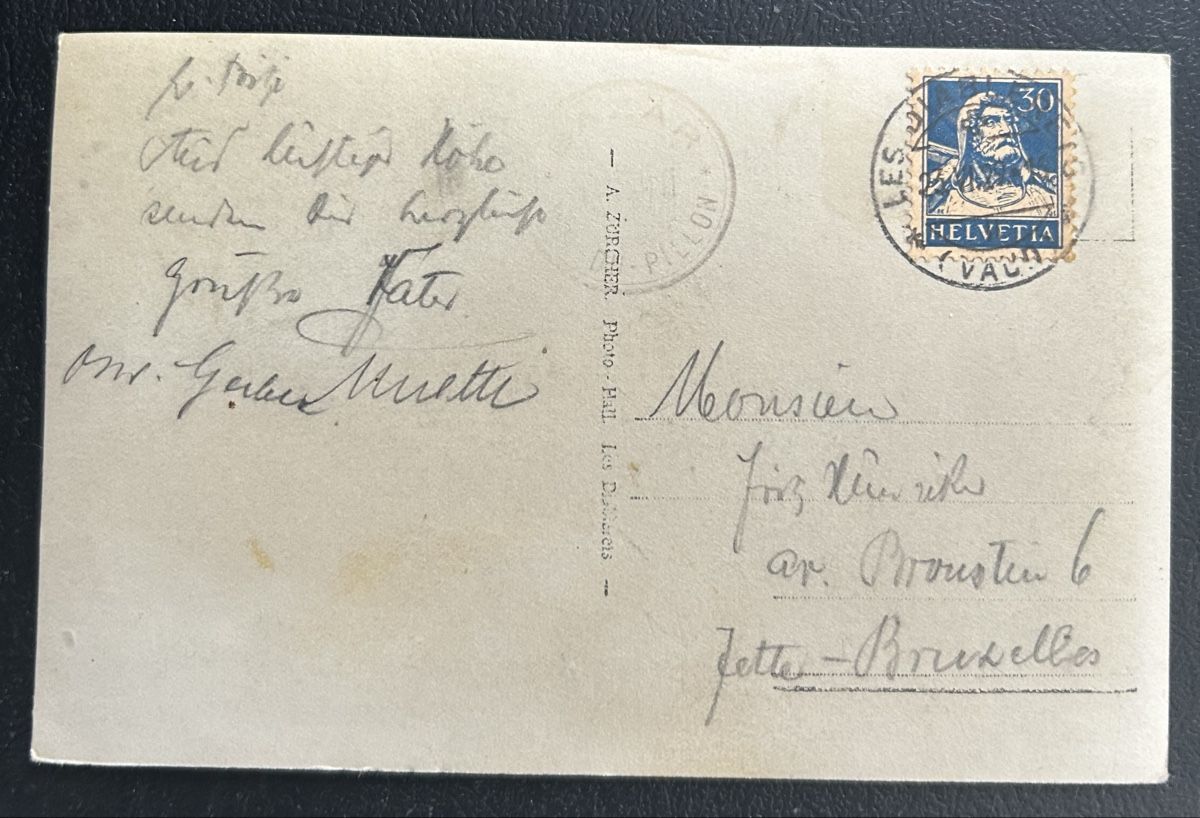 Aus luftiger Höhe
senden Dir herzlichste
Grüße Vater
Mutti
— A. ZÜRCHER. Photo-Hall Les Diablerets —
BAR * PILLON
30
HELVETIA
* LES DIABLERETS *
(VAUD)
Monsieur
Fritz
av. Broustin 6
Jette - Bruxelles